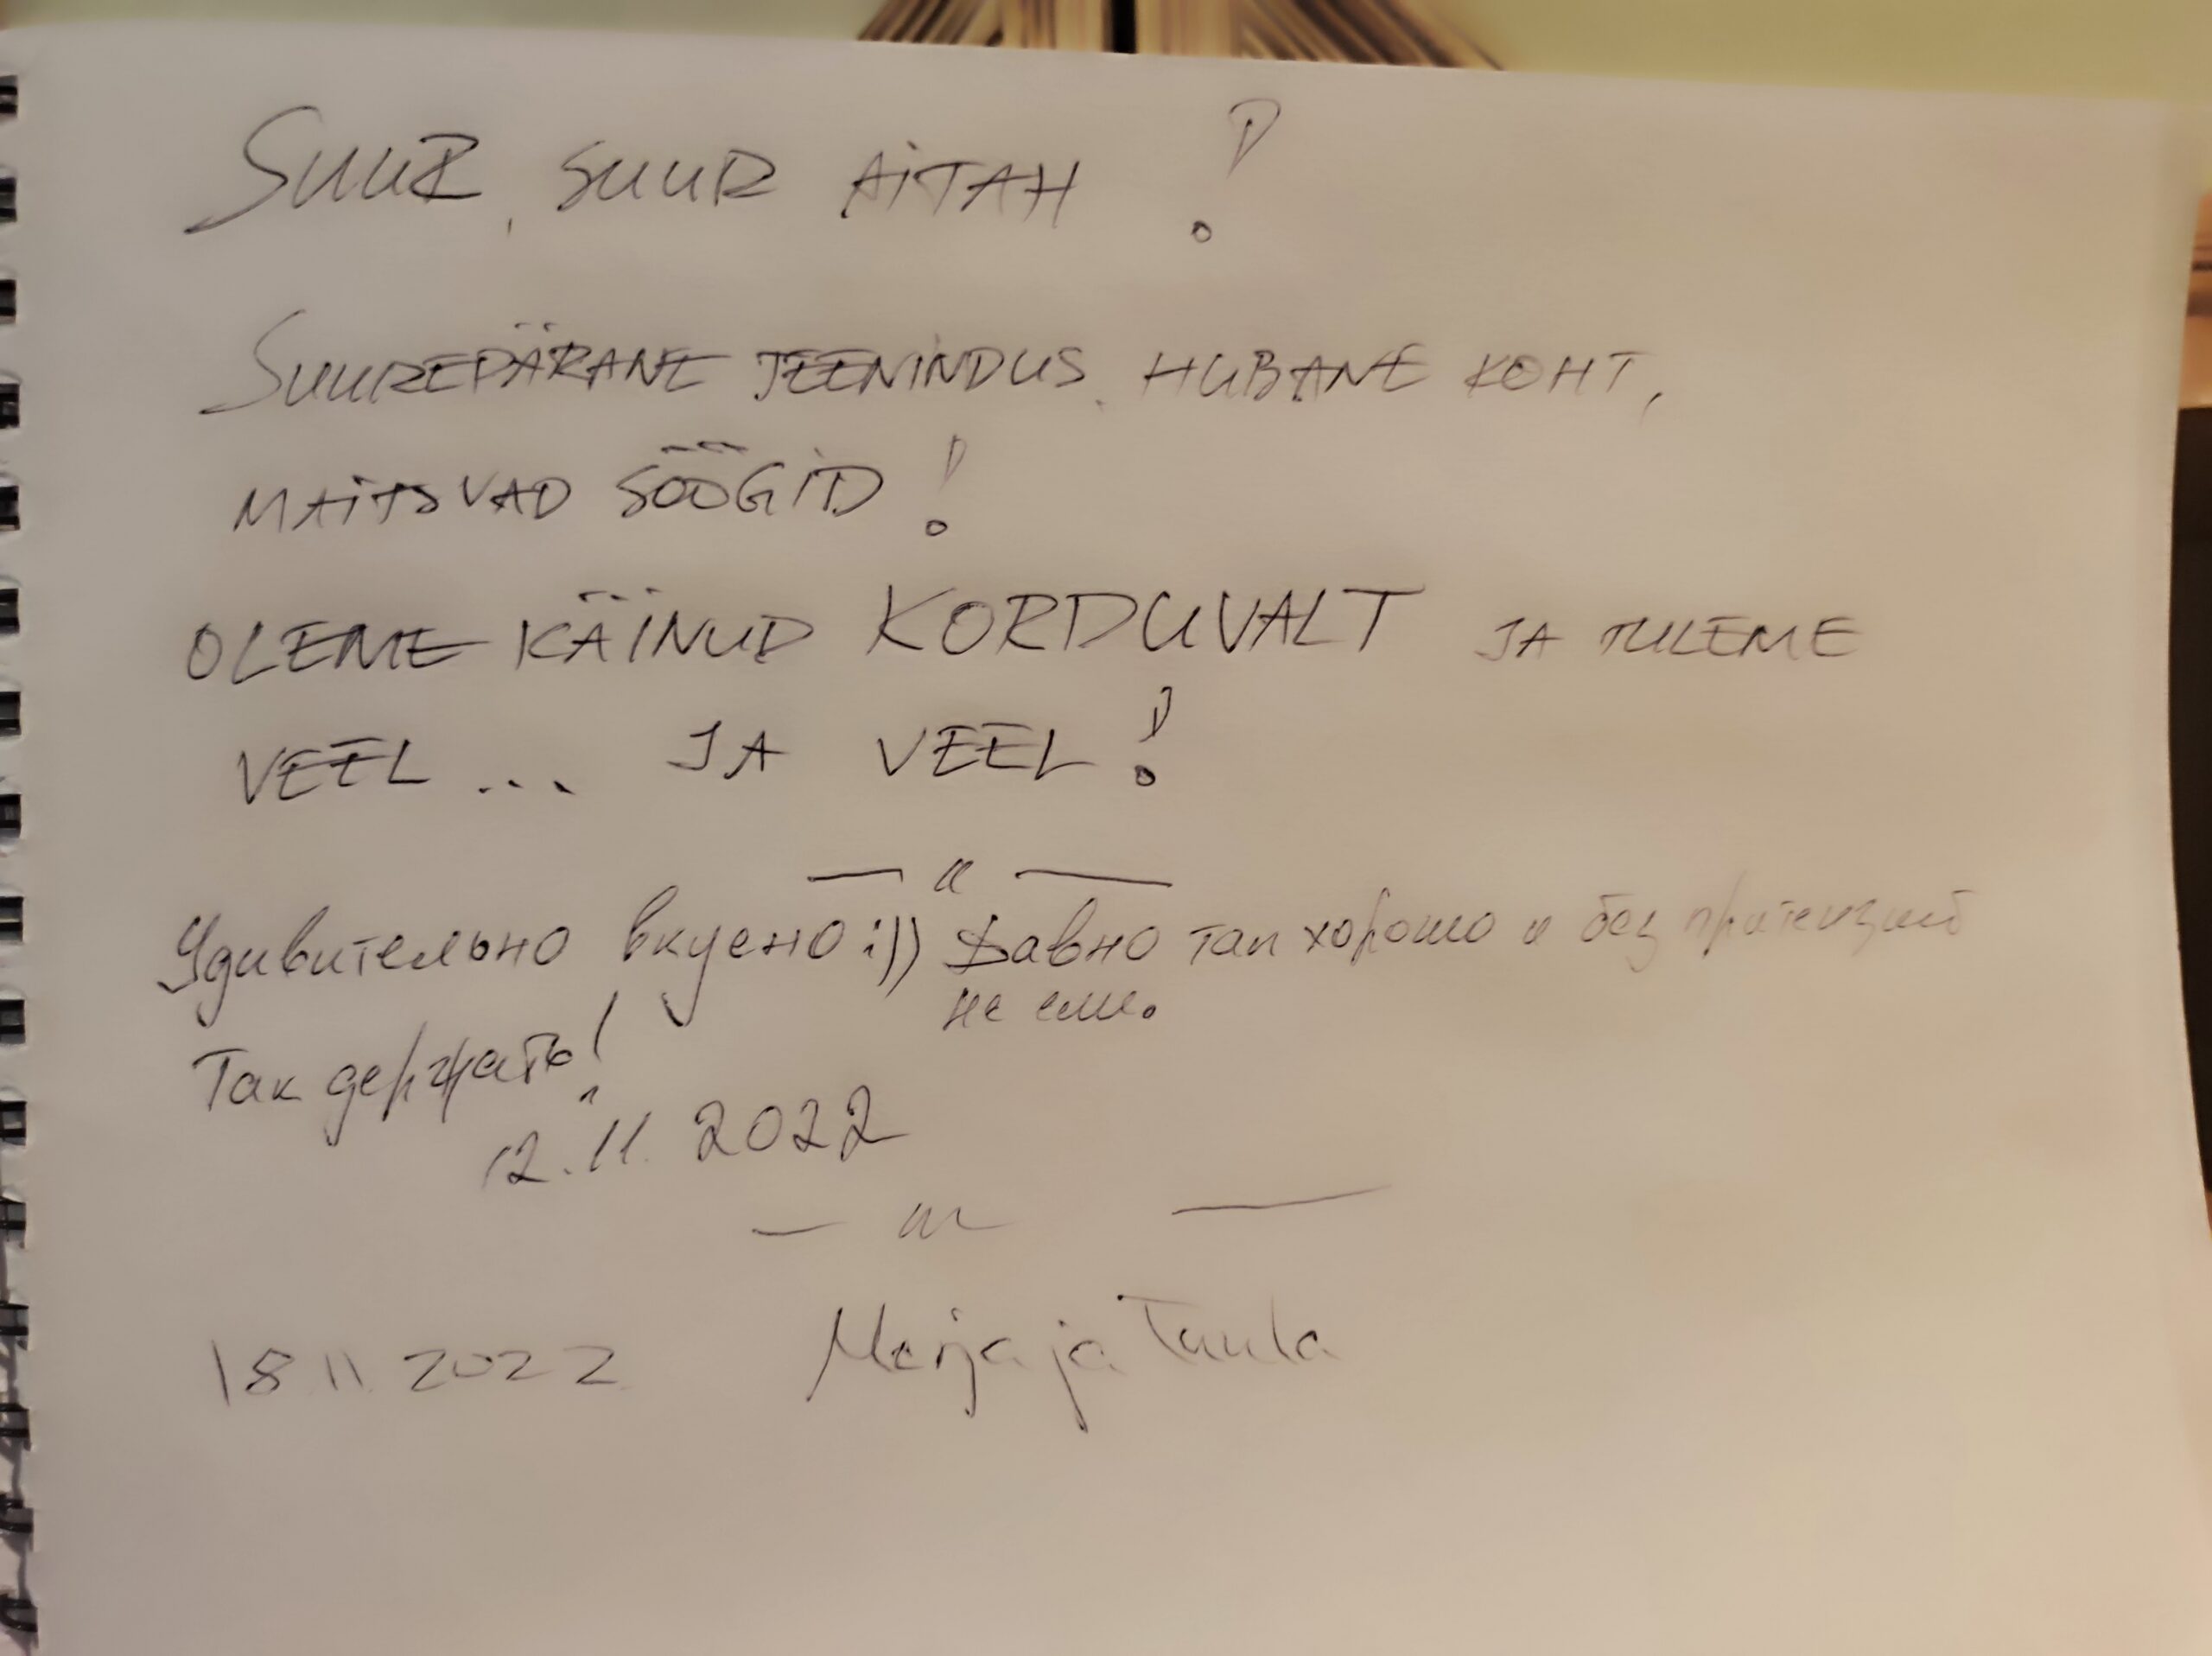 SUUR, SUUR AITAH!
SUUREPÄRANE TEENINDUS, HUBANE KOHT,
MAITSVAD SÖÖGID!
OLEME KÄINUD KORDUVALT JA TULEME
VEEL... JA VEEL!
— " —
Удивительно вкусно :)) Давно так хорошо и без притензий
не ели.
Так держать!
12.11.2022
— " —
18 11 2022 Merja ja Tuula